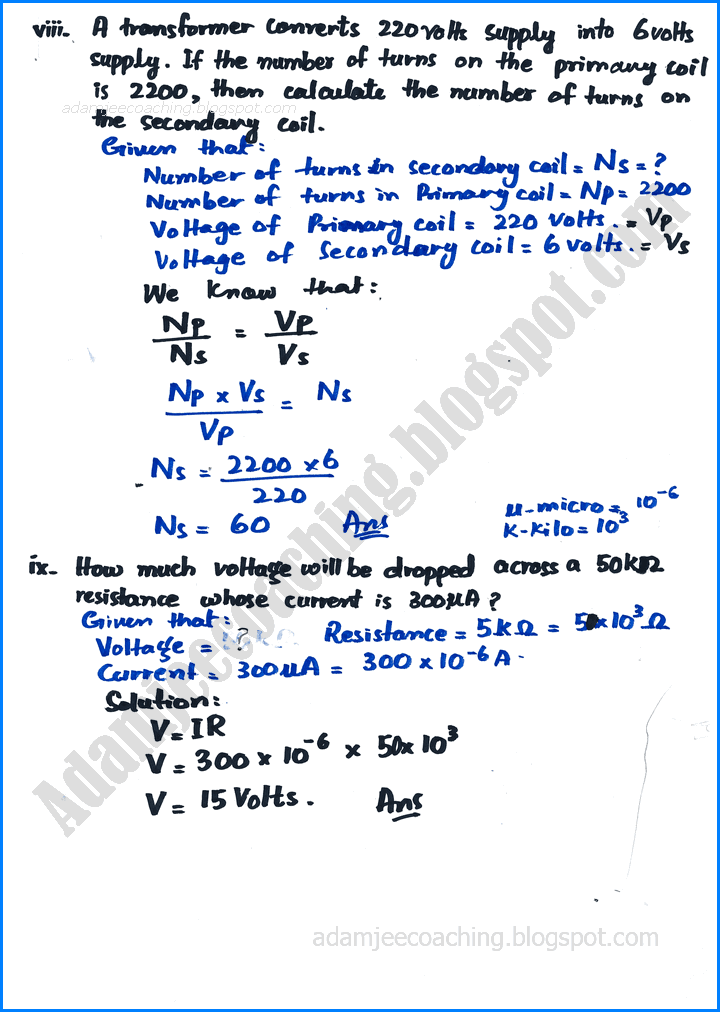 viii. A transformer converts 220 volts supply into 6 volts
supply. If the number of turns on the primary coil
is 2200, then calculate the number of turns on
adamjeecoaching.blogspot.com
the secondary coil.
Given that:
Number of turns in secondary coil = Ns = ?
Number of turns in Primary coil = Np = 2200
Voltage of Primary coil = 220 volts. = Vp
Voltage of Secondary coil = 6 volts. = Vs
We know that:
Np/Ns = Vp/Vs
Np x Vs/Vp = Ns
Ns = 2200 x 6/220
Ns = 60 Ans
μ-micro = 10⁻⁶
K-Kilo = 10³
ix- How much voltage will be dropped across a 50kΩ
resistance whose current is 300μA?
Given that:
Voltage = ? Resistance = 5KΩ = 5 x 10³ Ω
Current = 300μA = 300 x 10⁻⁶ A.
Solution:
V = IR
V = 300 x 10⁻⁶ x 50 x 10³
V = 15 Volts. Ans
Adamjeecoaching.blogspot.com
adamjeecoaching.blogspot.com